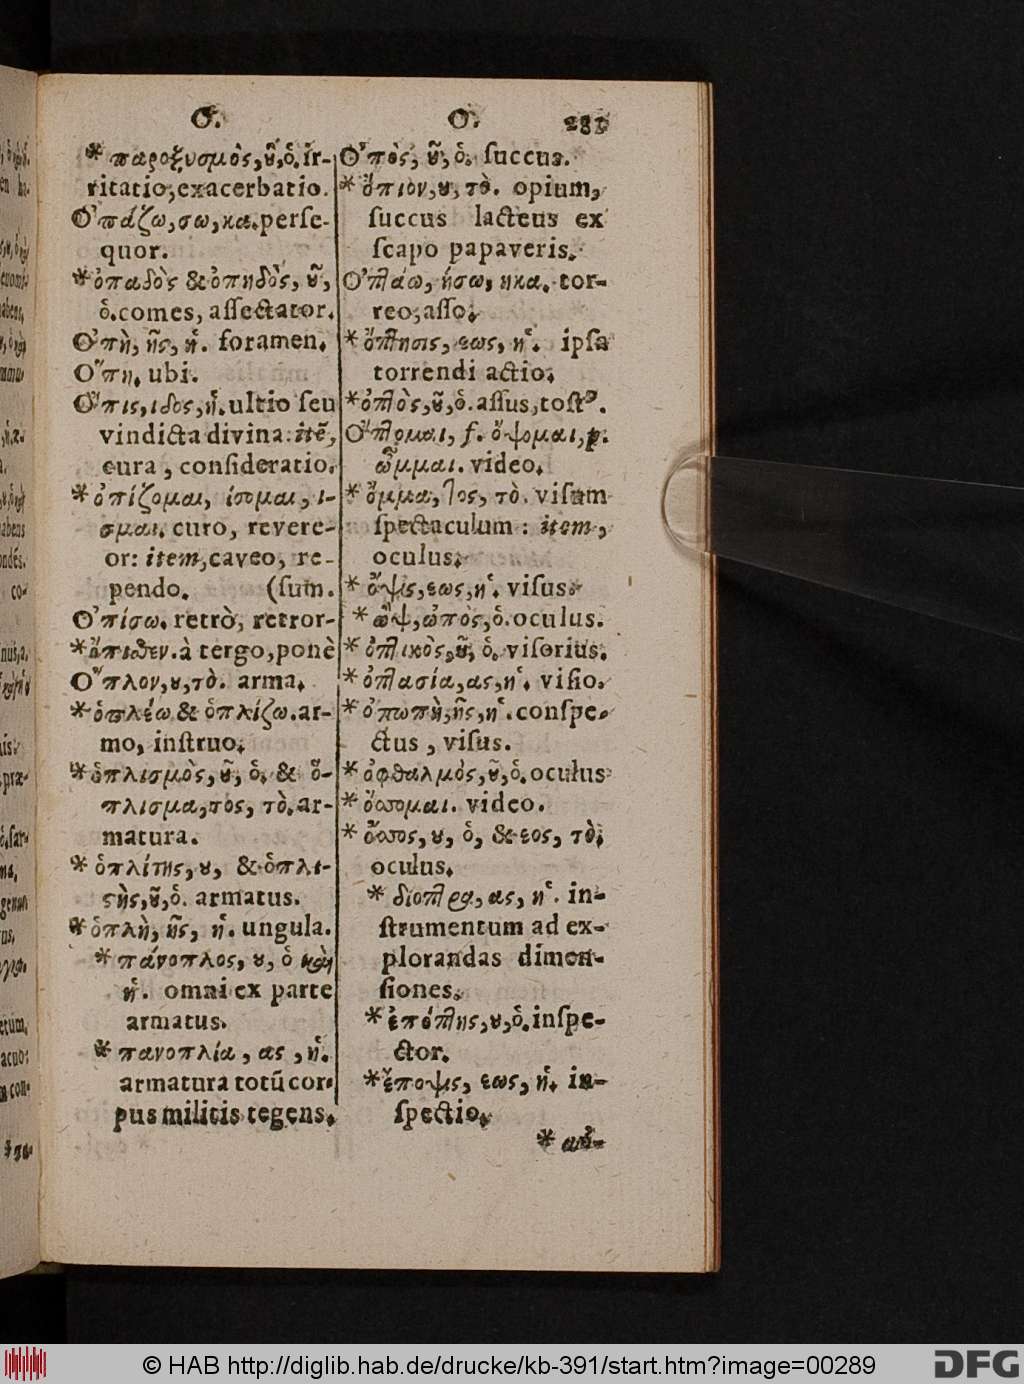 O. O. 281
* παροξυσμὸς, ȣ̃, ὁ. ir-
ritatio, exacerbatio.
Ὀπάζω, σω, κα. perſe-
quor.
* ὀπαδὸς & ὀπηδὸς, ȣ̃,
ὁ. comes, aſſectator.
Ὀπὴ, ῆς, ἡ. foramen.
Ὅπη. ubi.
Ὄπις, ιδος, ἡ. ultio ſeu
vindicta divina: itẽ,
cura, conſideratio.
* ὀπίζομαι, ίσομαι, ι-
σμαι. curo, revere-
or: item, caveo, re-
pendo. (ſum.
Ὀπίσω. retrò, retror-
* ὄπιθεν. à tergo, ponè
Ὅπλον, ȣ, τὸ. arma.
* ὁπλέω & ὁπλίζω. ar-
mo, inſtruo.
* ὁπλισμὸς, ȣ̃, ὁ. & ὅ-
πλισμα, τος, τὸ. ar-
matura.
* ὁπλίτης, ȣ, & ὁπλι-
ςὴς, ȣ̃, ὁ. armatus.
* ὁπλὴ, ῆς, ἡ. ungula.
* πάνοπλος, ȣ, ὁ καὶ
ἡ. omni ex parte
armatus.
* πανοπλία, ας, ἡ.
armatura totũ cor-
pus militis tegens.
Ὀπὸς, ȣ̃, ὁ. ſuccus.
* ὄπιον, ȣ, τὸ. opium,
ſuccus lacteus ex
ſcapo papaveris.
Ὀπτάω, ήσω, ηκα. tor-
reo, aſſo.
* ὄπτησις, εως, ἡ. ipſa
torrendi actio.
* ὀπτὸς, ȣ̃, ὁ. aſſus, toſtꝰ.
Ὄπτομαι, f. ὄψομαι, p.
ὦμμαι. video.
* ὄμμα, τος, τὸ. viſum
ſpectaculum: item,
oculus.
* ὄψις, εως, ἡ. viſus.
* ὢψ, ὠπὸς, ὁ. oculus.
* ὀπτικὸς, ȣ̃, ὁ. viſorius.
* ὀπτασία, ας, ἡ. viſio.
* ὀπωπὴ, ῆς, ἡ. conſpe-
ctus, viſus.
* ὀφθαλμὸς, ȣ̃, ὁ. oculus
* ὄσσομαι. video.
* ὄσσος, ȣ, ὁ, & εος, τὸ.
oculus.
* διόπτρα, ας, ἡ. in-
ſtrumentum ad ex-
plorandas dimen-
ſiones.
* ἐπόπτης, ȣ, ὁ. inſpe-
ctor.
* ἔποψις, εως, ἡ. in-
ſpectio.
© HAB http://diglib.hab.de/drucke/kb-391/start.htm?image=00289
DFG